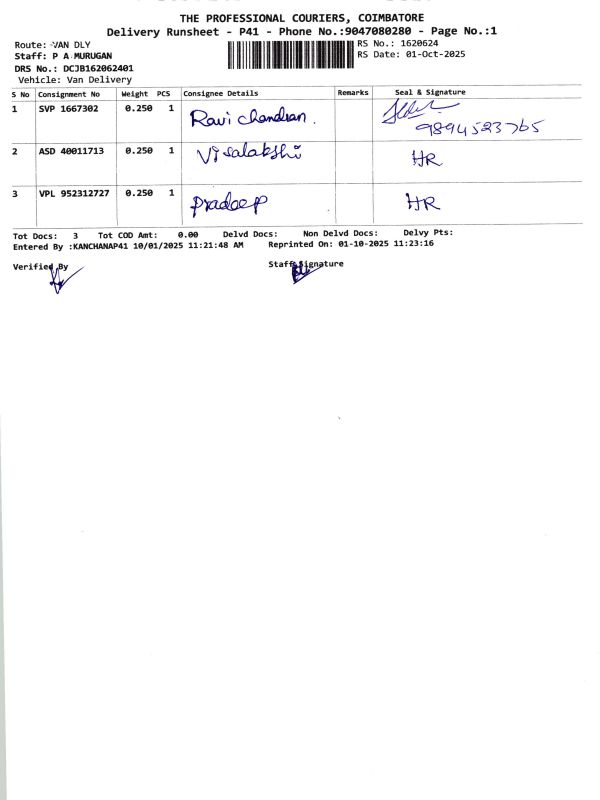 THE PROFESSIONAL COURIERS, COIMBATORE
Delivery Runsheet - P41 - Phone No.:9047080280 - Page No.:1
Route: VAN DLY
RS No.: 1620624
Staff: P A MURUGAN
RS Date: 01-Oct-2025
DRS No.: DCJB162062401
Vehicle: Van Delivery
S No Consignment No Weight PCS Consignee Details Remarks Seal & Signature
1 SVP 1667302 0.250 1 Ravi chandran. 9894523765
2 ASD 40011713 0.250 1 Visalakshi HR
3 VPL 952312727 0.250 1 Pradeep HR
Tot Docs: 3 Tot COD Amt: 0.00 Delvd Docs: Non Delvd Docs: Delvy Pts:
Entered By :KANCHANAP41 10/01/2025 11:21:48 AM Reprinted On: 01-10-2025 11:23:16
Verified By Staff Signature